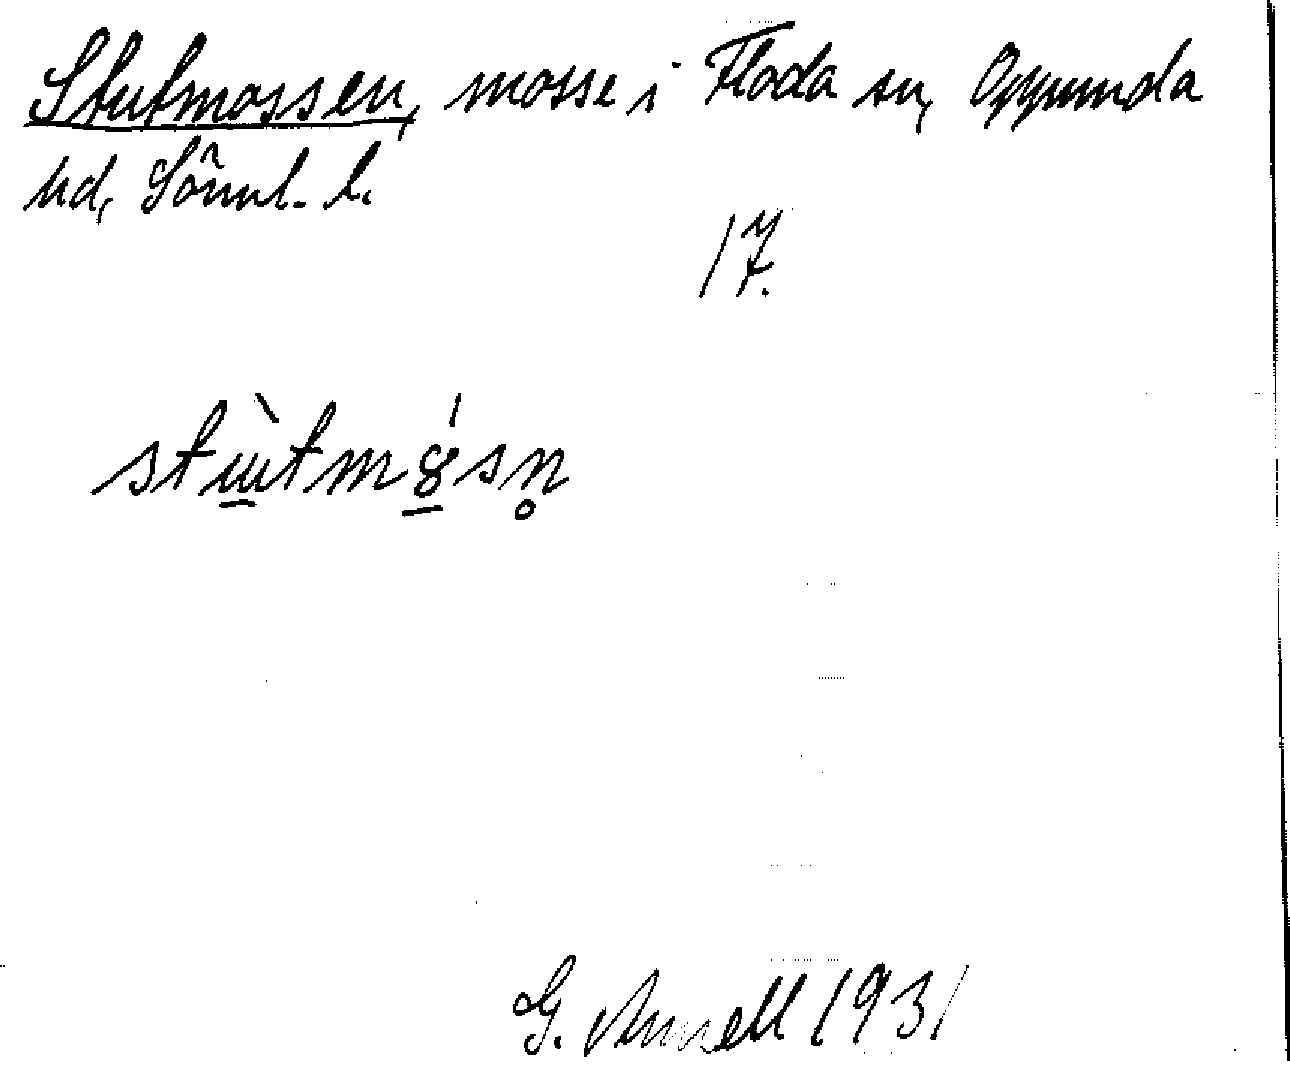 Stutmossen, mosse i Floda sn, Oppunda
hd, Sörml. l.
17.
stù̲tm8̲́sn̥
G. Arnell 1931